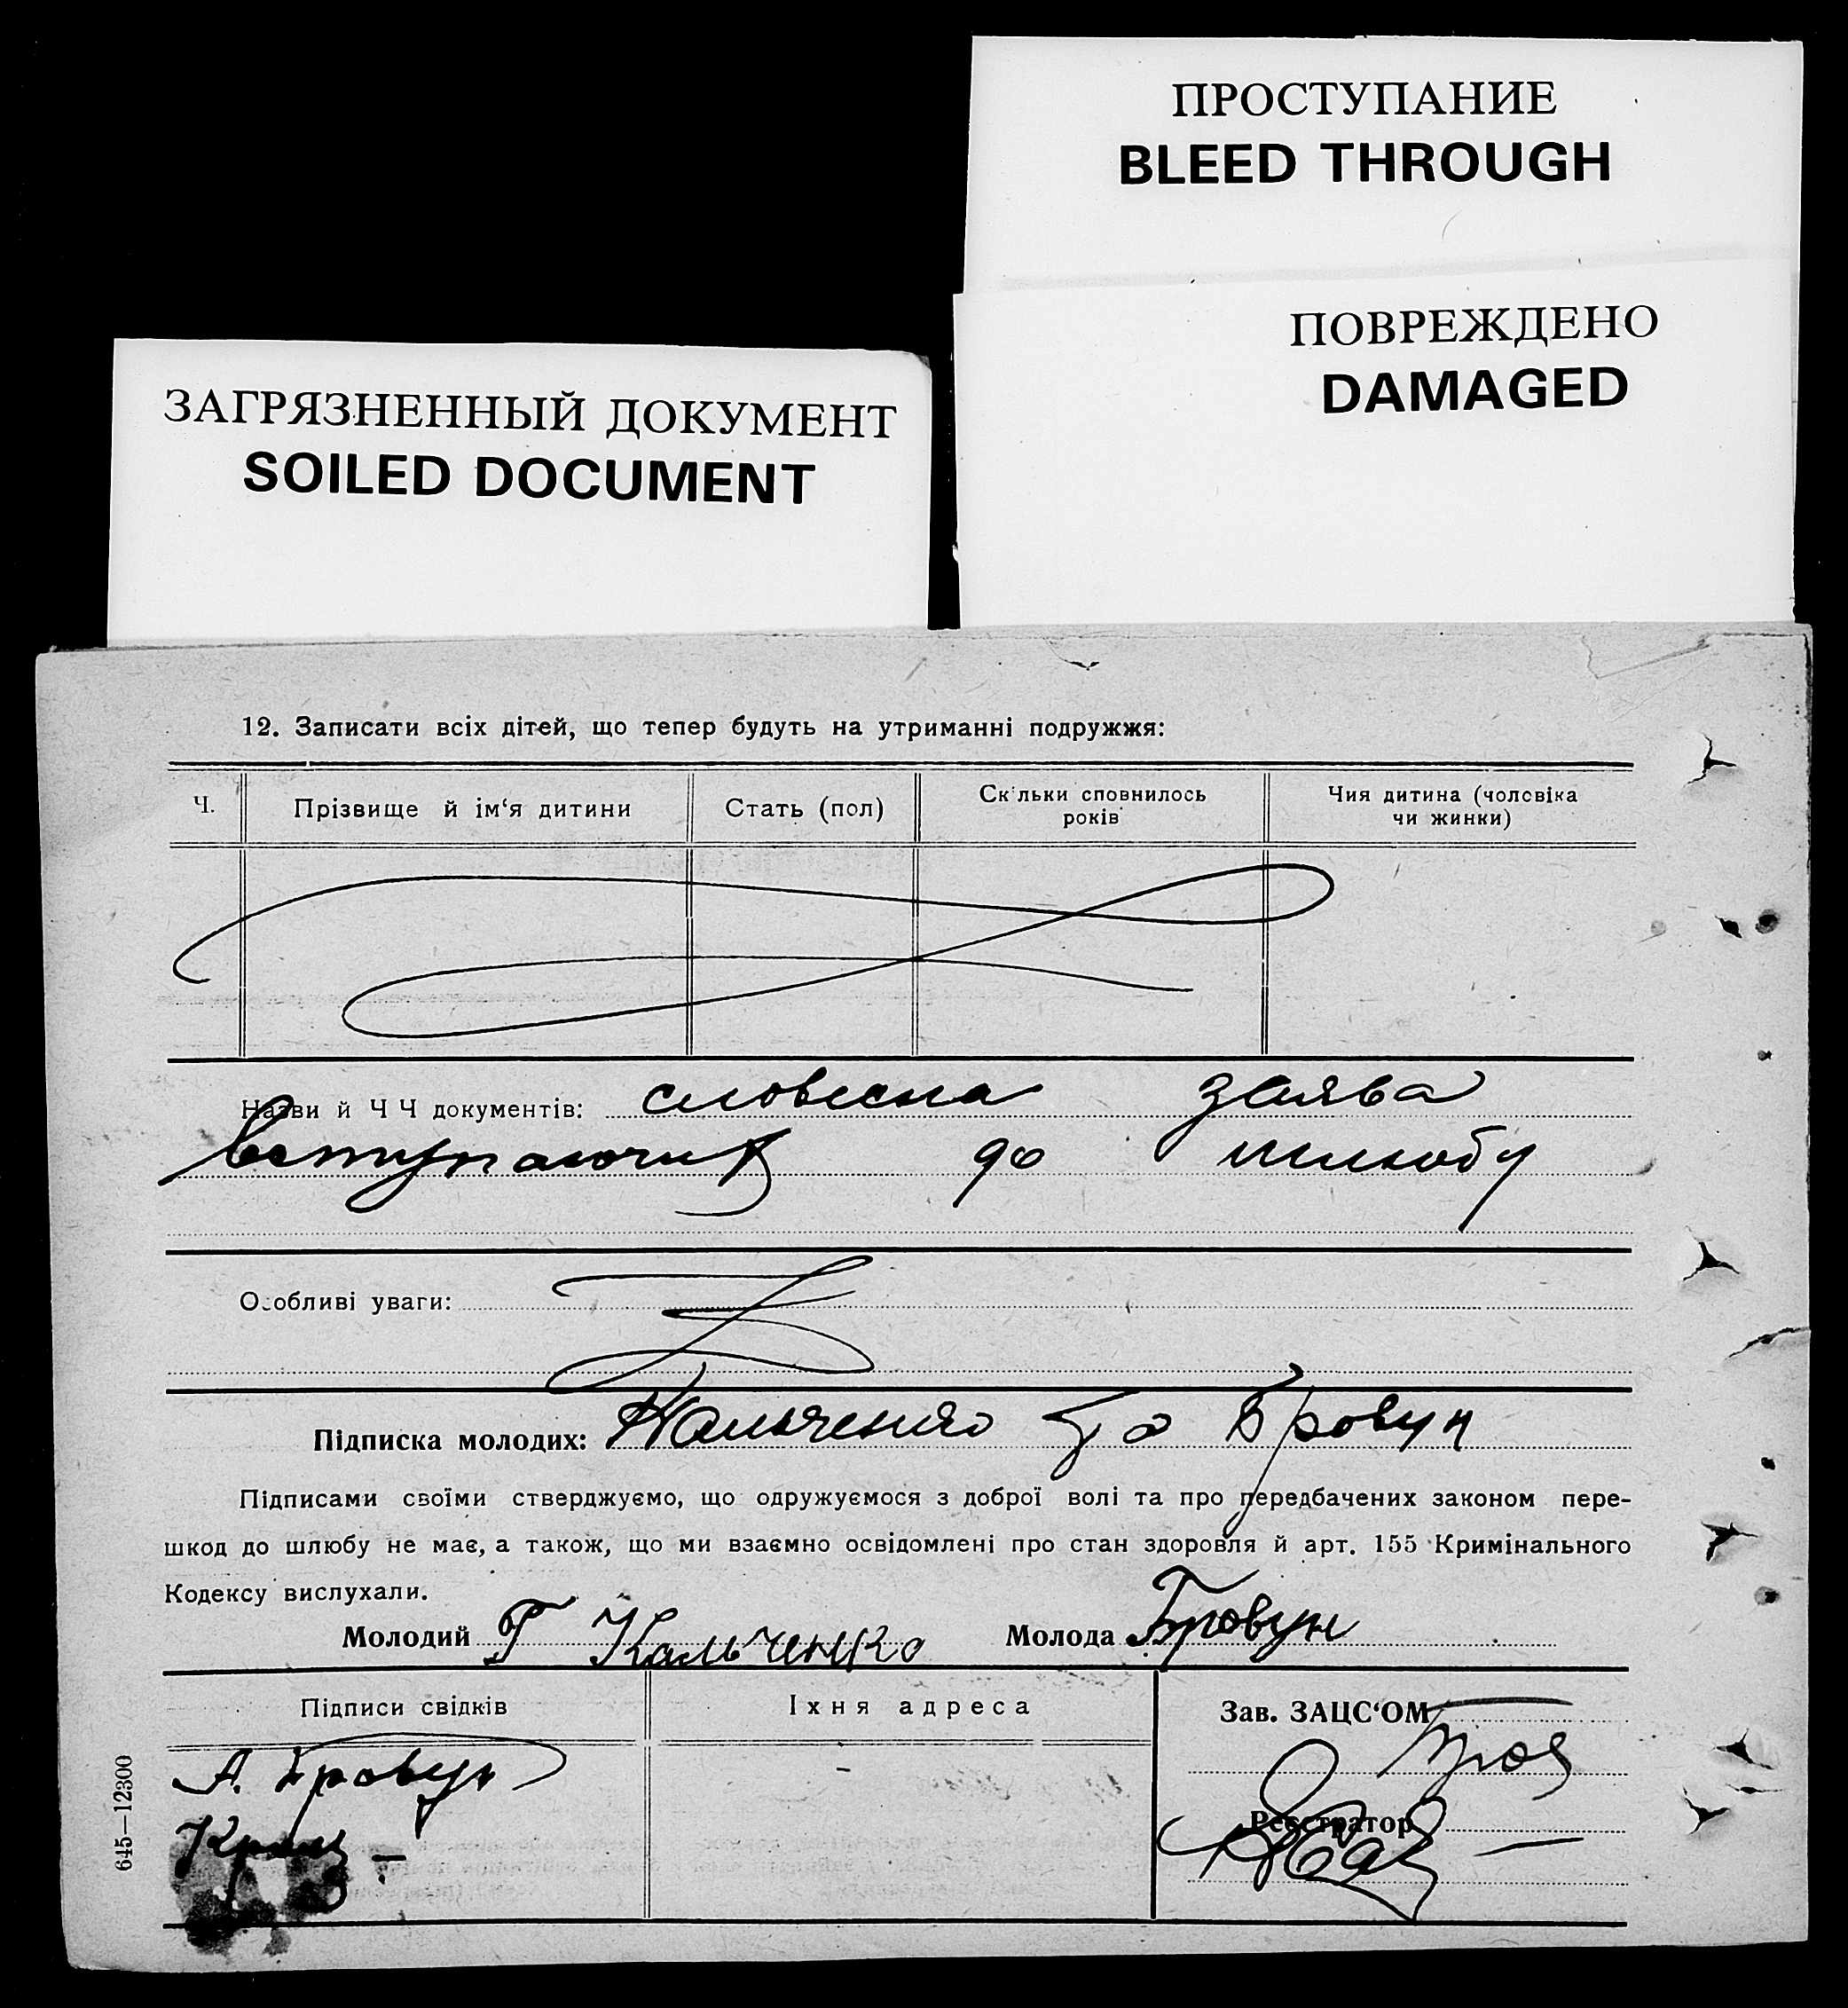 ПРОСТУПАНИЕ
BLEED THROUGH
ПОВРЕЖДЕНО
DAMAGED
ЗАГРЯЗНЕННЫЙ ДОКУМЕНТ
SOILED DOCUMENT
12. Записати всіх дітей, що тепер будуть на утриманні подружжя:
Ч.
Прізвище й ім‘я дитини
Стать (пол)
Скільки сповнилось
років
Чия дитина (чоловіка
чи жинки)
Назви й Ч Ч документів: словесна заява
вступаючих до шлюбу
Особливі уваги:
Підписка молодих: Кальченко та Бровун
Підписами своїми стверджуємо, що одружуємося з доброї волі та про передбачених законом пере-
шкод до шлюбу не має, а також, що ми взаємно освідомлені про стан здоровля й арт. 155 Кримінального
Кодексу вислухали.
Молодий Г Кальченко Молода Бровун
Підписи свідків
Іхня адреса
Зав. ЗАЦС‘ОМ
А. Бровун
Реєстратор
645—12300